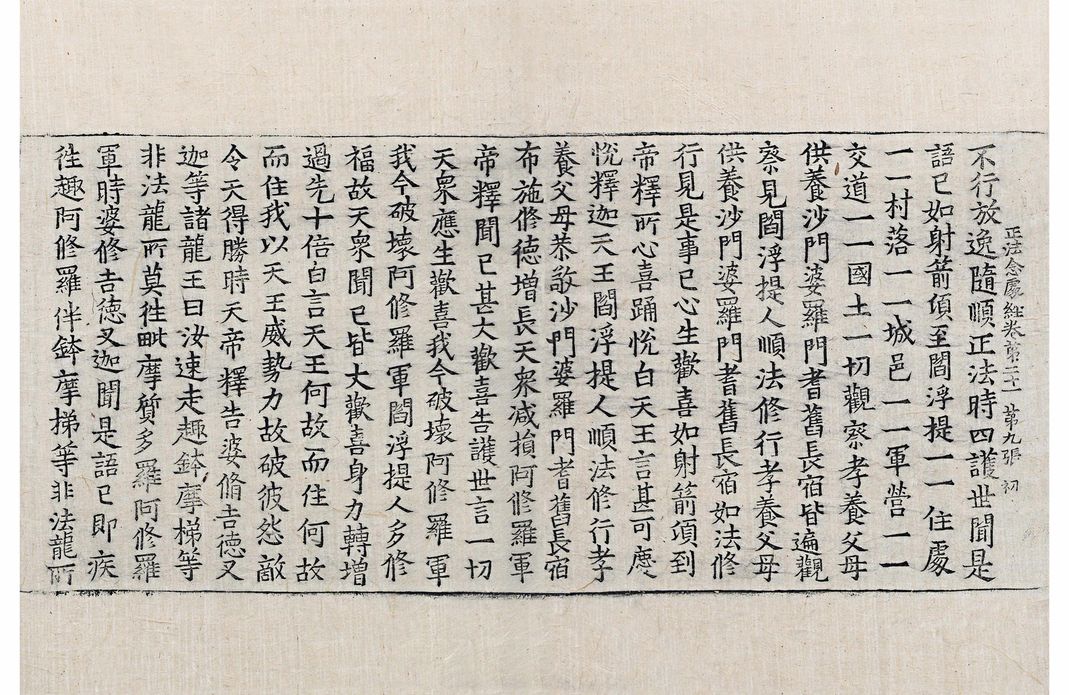 正法念處經卷第二十一 第九張 初
不行放逸隨順正法時四護世聞是
語已如射箭頃至閻浮提一一住處
一一村落一一城邑一一軍營一一
交道一一國土一切觀察孝養父母
供養沙門婆羅門耆舊長宿皆遍觀
察見閻浮提人順法修行孝養父母
供養沙門婆羅門耆舊長宿如法修
行見是事已心生歡喜如射箭頃到
帝釋所心喜踊悅白天王言甚可慶
悅釋迦天王閻浮提人順法修行孝
養父母恭敬沙門婆羅門耆舊長宿
布施修德增長天衆减損阿修羅軍
帝釋聞已甚大歡喜告護世言一切
天衆應生歡喜我今破壞阿修羅軍
我今破壞阿修羅軍閻浮提人多修
福故天衆聞已皆大歡喜身力轉增
過先十倍白言天王何故而住何故
而住我以天王威勢力故破彼怨敵
令天得勝時天帝釋告婆脩吉德叉
迦等諸龍王曰汝速走趣鉢摩梯等
非法龍所莫徃毗摩質多羅阿修羅
軍時婆修吉德叉迦聞是語已即疾
徃趣阿修羅伴鉢摩梯等非法龍所